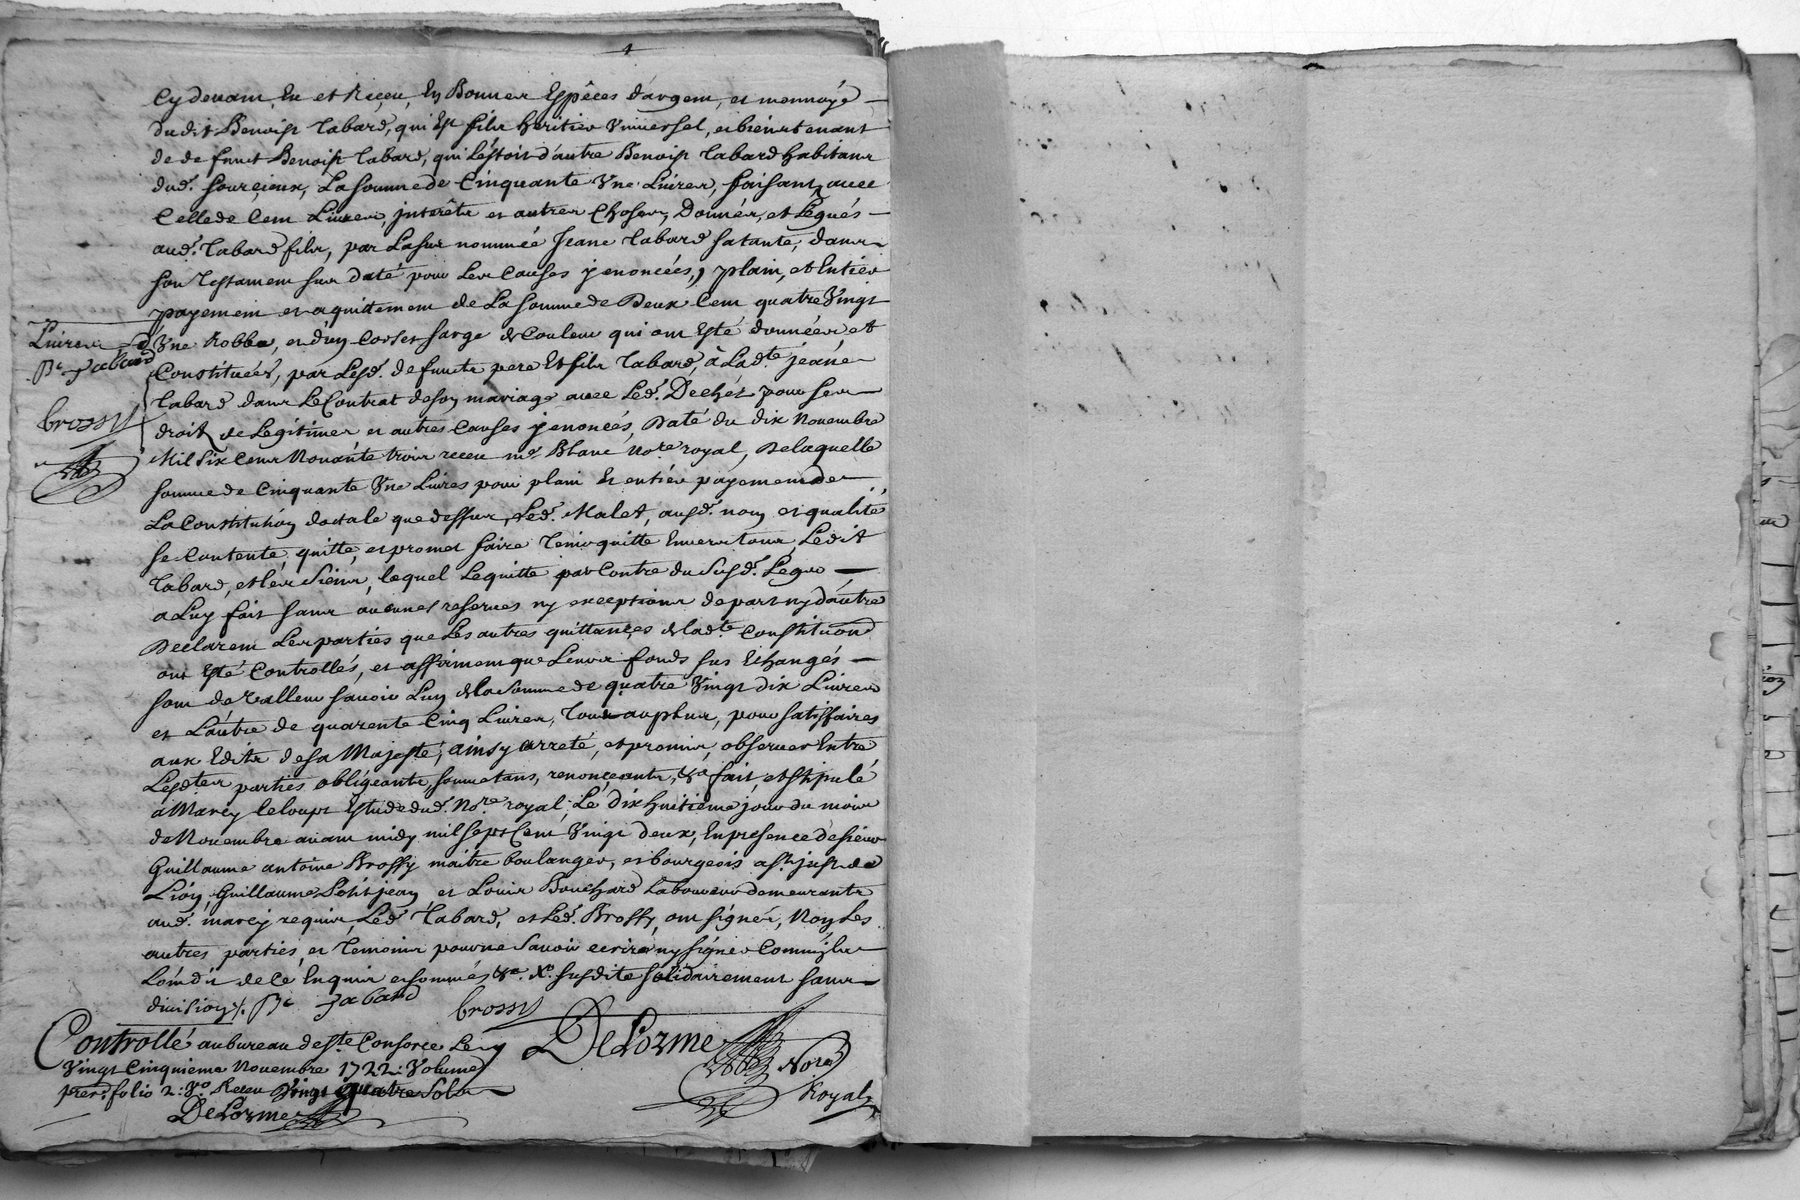 Cy devant, Eu et Receu, En Bonnes Espèces d'argent, et monnoyé
dudit Benoist Tabard, qui Est fils héritier Vniversel, et bien tenant
de defunct Benoist Tabard, qui L'éstoit d'autre Benoist Tabard habitans
dud. Sourcieux, La somme de Cinquante Vne Livres, faisant avec
Celle de Cent Livres jnterêts et autres Choses, Donnés, et Legués
aud. Tabard fils, par La sus nommée Jeane Tabard sa tante, dans
son Testament sus daté pour Les Causes y enoncées, plain, et Entier
payement et aquittement de La somme de Deux Cent quatre Vingt
Livres
Bt Tabard
brossy
Vne Robbe, et d'un Corset sarge de Couleur qui ont Esté données et
Constituées, par Lesd. defuncts pere Et fils Tabard, à Lad.te jeáne
Tabard dans Le Contrat de son mariage avec Led. Dechet pour ses
droits de Legitimes et autres Causes y enoncés, Daté du dix Novembre
Mil Six Cens Nonánte trois receu me Blanc No.re royal, De laquelle
somme de Cinquante Vne Livres pour plain Et entiér payement de
La Constitution doctale que dessus, Led. Malet, ausd. nom et qualité
se Contente, quitte, et promet faire Tenir quitte Envers tous, Ledit
Tabard, et Les Siens, lequel Le quitte par Contre du Susd. Legue
a Luy fait sans aucunes reserves ny exceptions de part ny d'aútre
Declarent Les parties que Les autres quittances de lad.te Constitution
ont Esté Controllés, et affirment que Leurs fonds sus Echangés
sont de Valleur savoir L'un de la somme de quatre Vingt dix Livres
et L'aútre de quarente Cinq Livres, Tout au plus, pour satisfaires
aux Edits de sa Majesté, ainsy arreté, et promis, observer Entre
Lesd.tes parties obligeants, soumetans, renonceants, &a fait, et stipulé
á Marcy le loupt Estude dud. No.re royal, Le dix huitieme jour du mois
de Novembre avant midy mil sept Cent Vingt deux, En presence de siéur
Guillaume antoine Brossy maitre boulanger, et bourgeois a st just de
Lión, Guillaume Petitjean et Louis Bouchard Laboureur demeurants
aud. marcy requis, Led. Tabard, et Led. Brossy, ont signés, Non Les
autres parties, et Temoins pour ne Savoir ecrire ny signer Comm'ils
L'ont dit de Ce Enquis et sommés &a. Xo. susdite solidairement sans
division /. Bt Tabard brossy
DeLorme Nore Royal
Controllé au bureau de ste Consorce Le
Vingt Cinquieme Novembre 1722: Volume
prer. folio 2: Vo Receu Vingt quatre Sols
DeLorme